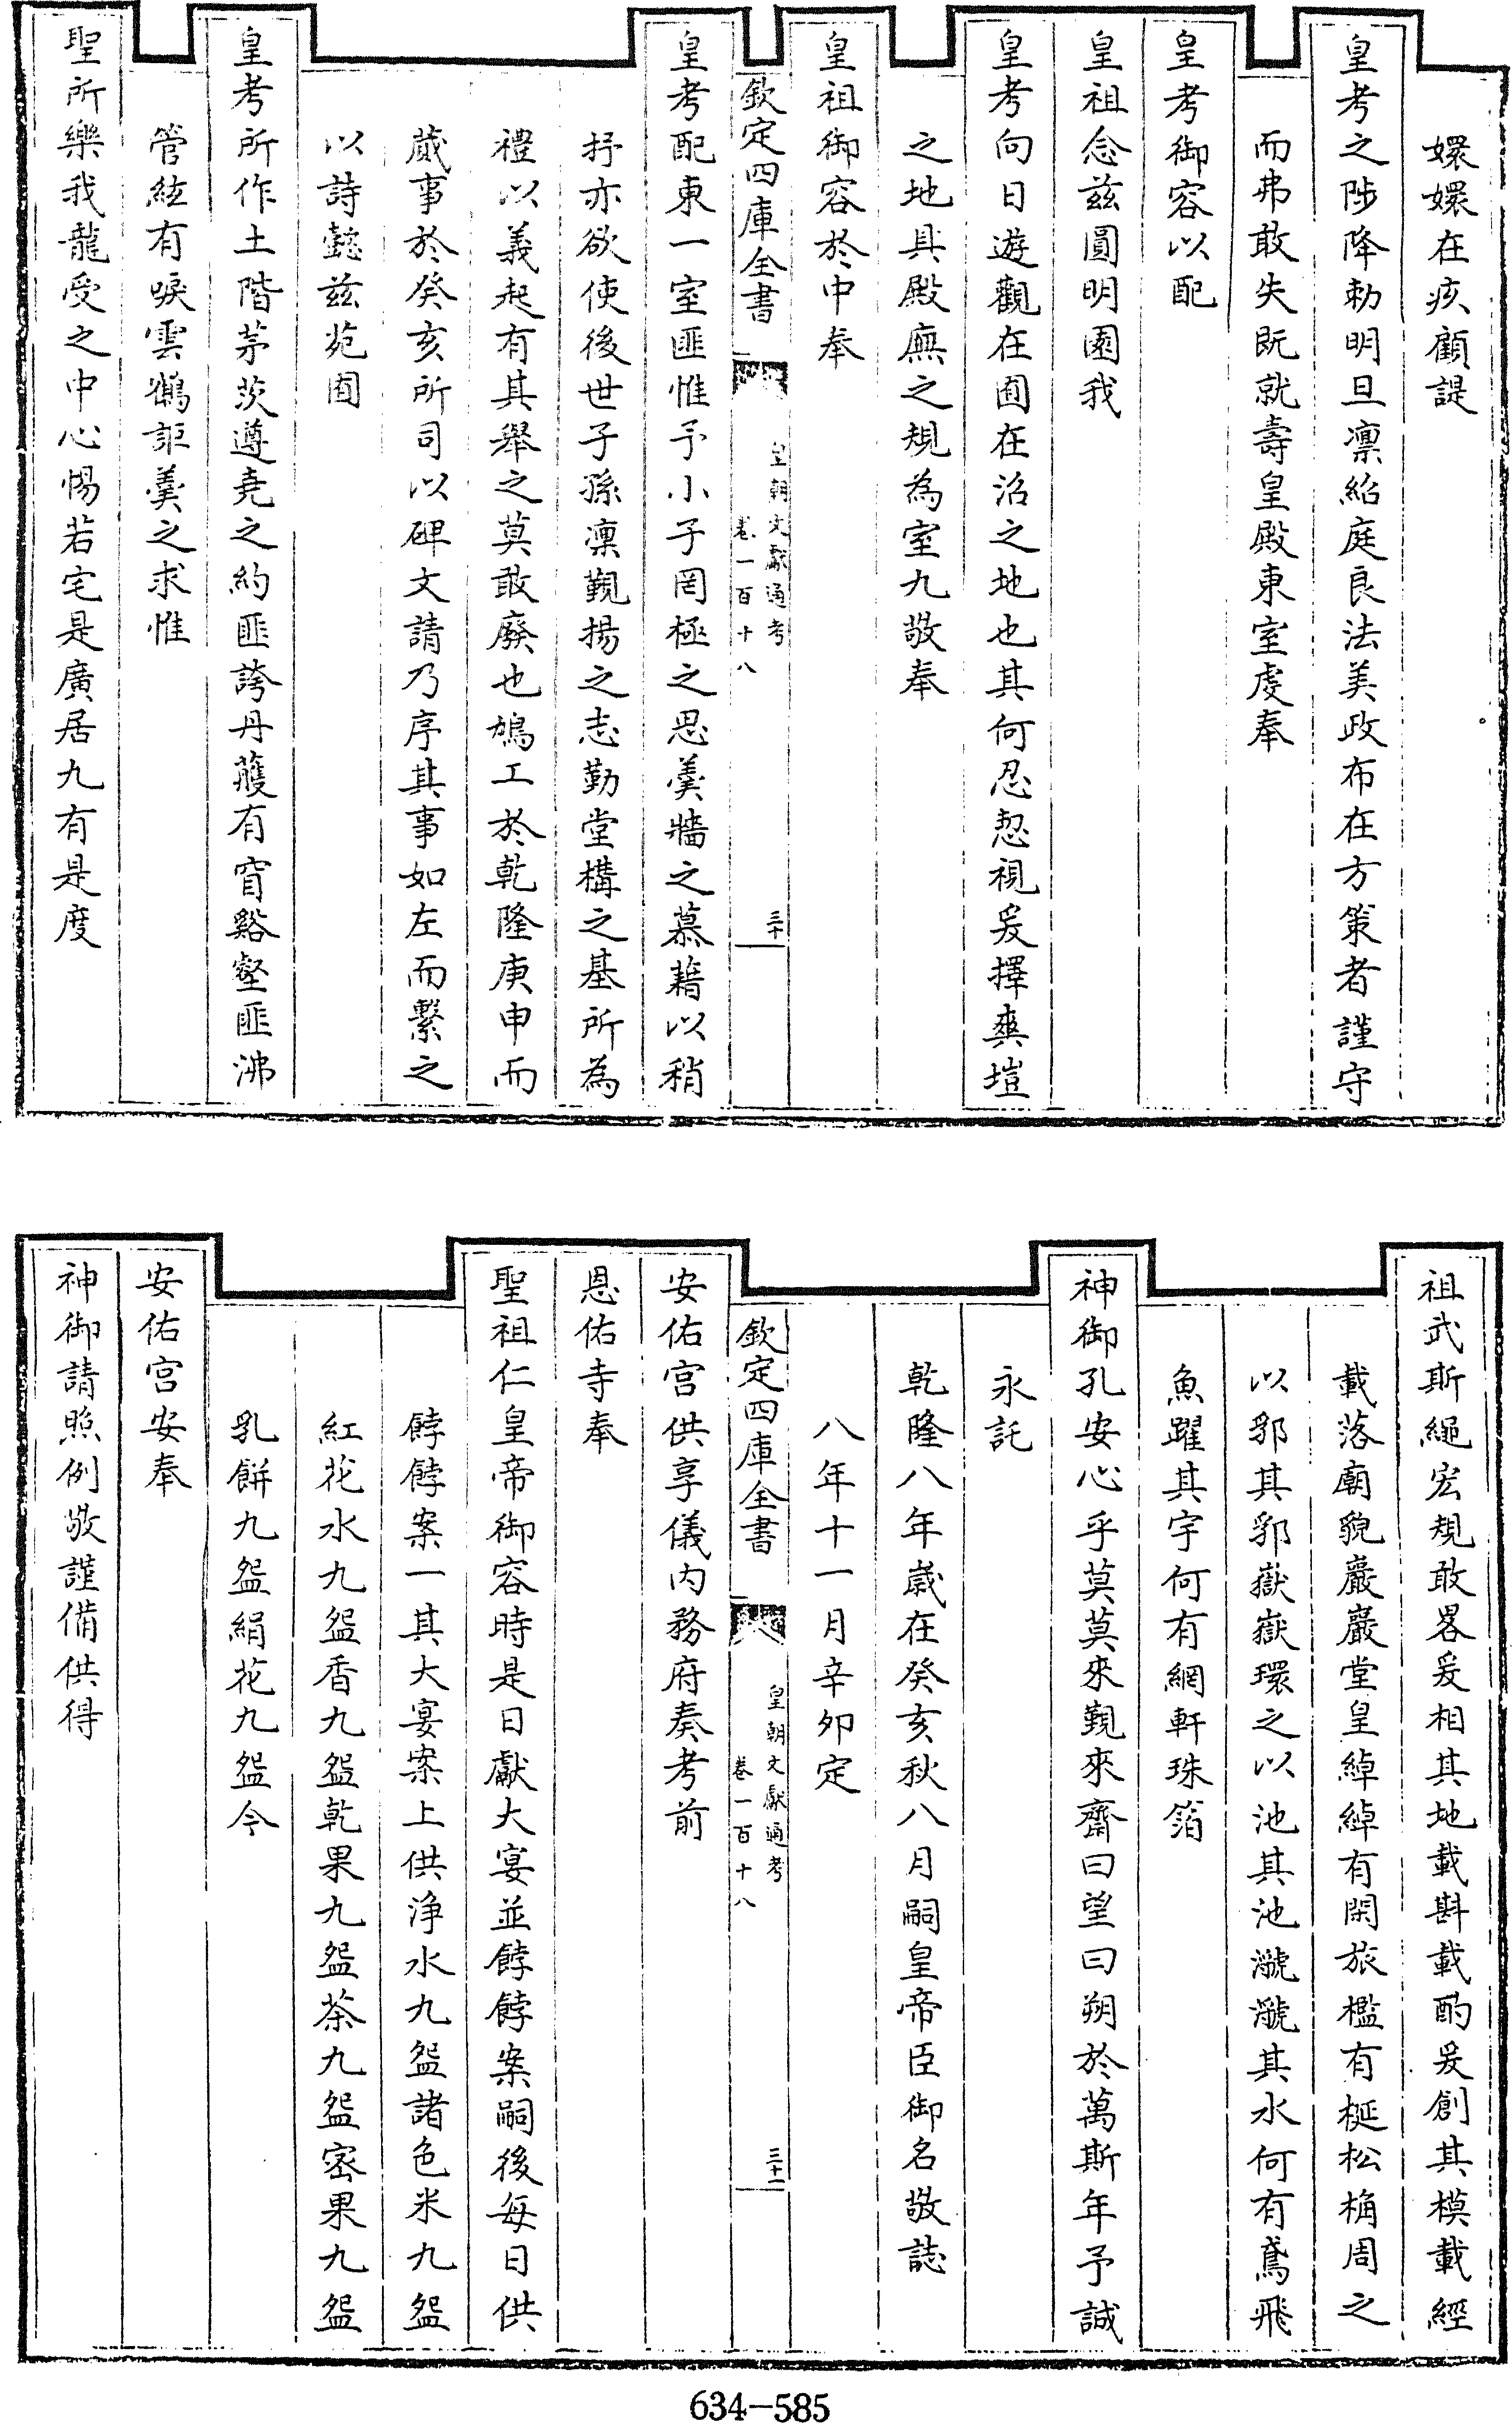 嬛嬛在疚顧諟
皇考之陟降勅明旦凛紹庭良法美政布在方策者謹守
而弗敢失既就壽皇殿東室虔奉
皇考御容以配
皇祖念兹圓明園我
皇考向日遊觀在囿在沼之地也其何忍恝視爰擇爽塏
之地具殿廡之規為室九敬奉
皇祖御容於中奉
欽定四庫全書
皇朝文獻通考
卷一百十八
三十
皇考配東一室匪惟予小子罔極之思羹牆之慕藉以稍
抒亦欲使後世子孫凛覲揚之志勤堂構之基所為
禮以義起有其舉之莫敢廢也鳩工於乾隆庚申而
蕆事於癸亥所司以碑文請乃序其事如左而繫之
以詩懿兹苑囿
皇考所作土階茅茨遵堯之約匪誇丹雘有窅谿壑匪沸
管絃有唳雲鶴詎羹之求惟
聖所樂我龍受之中心惕若宅是廣居九有是度
祖武斯繩宏規敢畧爰相其地載斟載酌爰創其模載經
載落廟貌巖巖堂皇綽綽有閑旅楹有梴松桷周之
以郛其郛嶽嶽環之以池其池㶁㶁其水何有鳶飛
魚躍其宇何有網軒珠箔
神御孔安心乎莫莫來覲來齋曰望曰朔於萬斯年予誠
永託
乾隆八年歲在癸亥秋八月嗣皇帝臣御名敬誌
八年十一月辛卯定
欽定四庫全書
皇朝文獻通考
卷一百十八
三十一
安佑宫供享儀内務府奏考前
恩佑寺奉
聖祖仁皇帝御容時是日獻大宴並餑餑案嗣後每日供
餑餑案一其大宴案上供淨水九盌諸色米九盌
紅花水九盌香九盌乾果九盌茶九盌密果九盌
乳餅九盌絹花九盌今
安佑宫安奉
神御請照例敬謹備供得
634-585